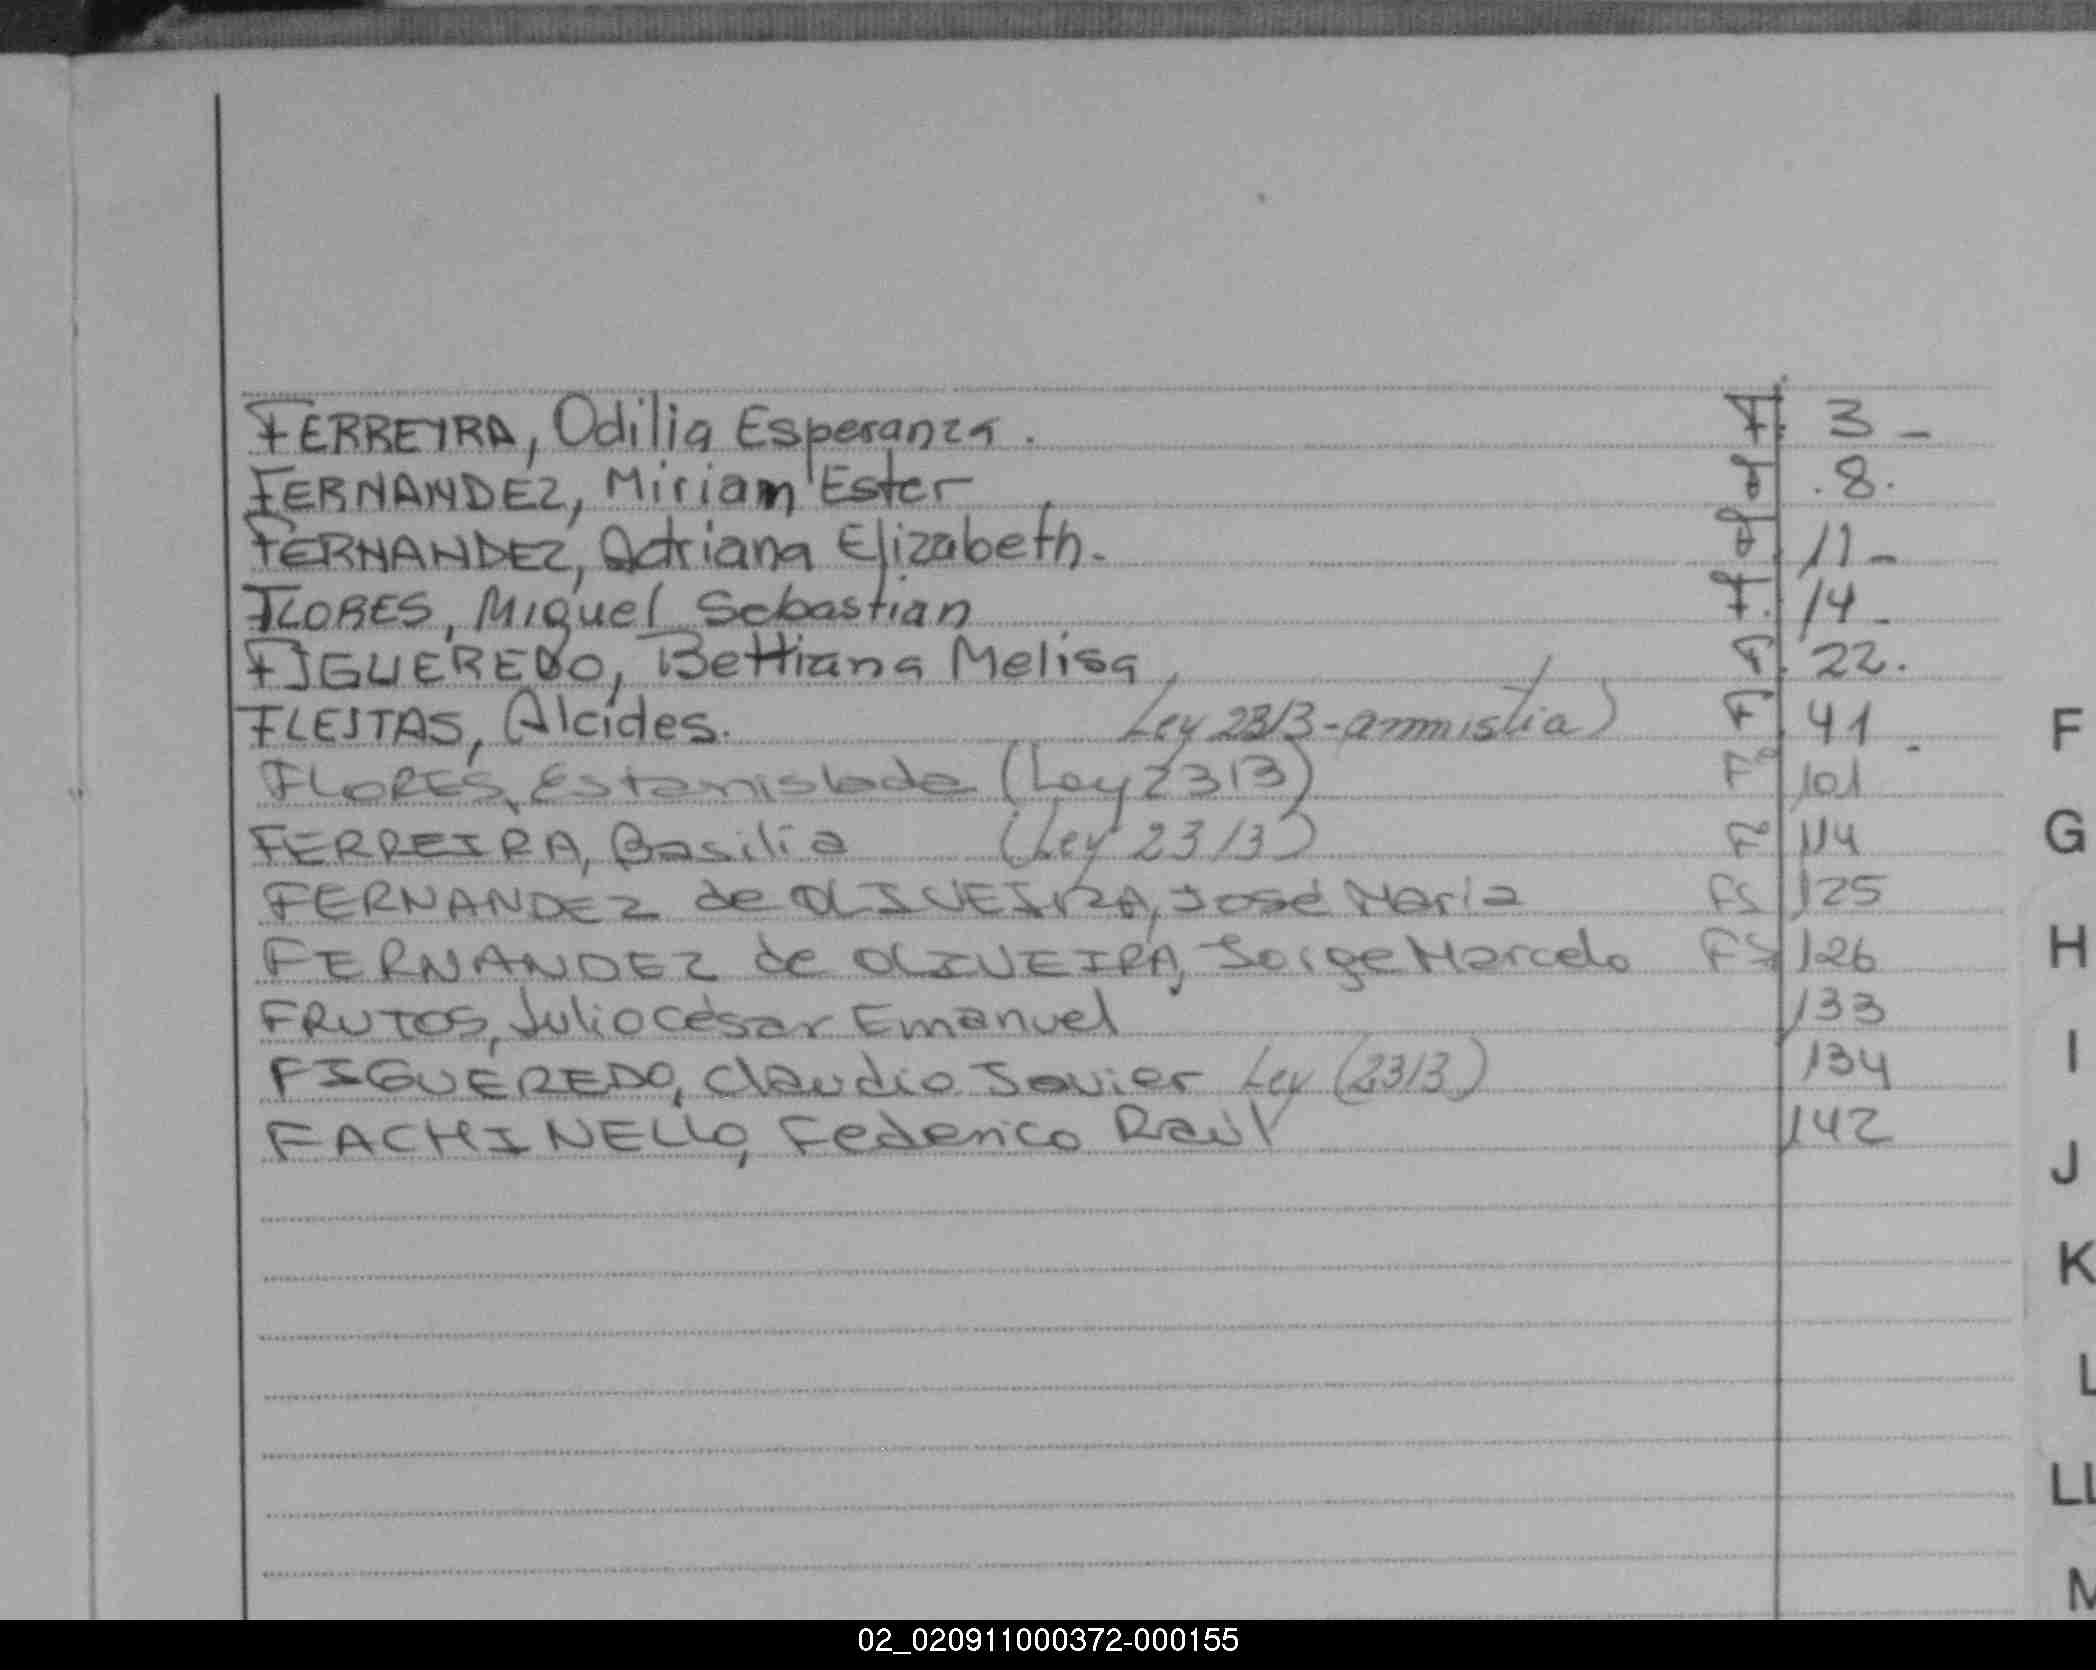 FERREYRA, Odilia Esperanza. F. 3 -
FERNANDEZ, Miriam Ester F .8.
FERNANDEZ, Adriana Elizabeth. F. 11 -
FLORES, Miguel Sebastian F. 14 -
FIGUEREDO, Bettiana Melisa F. 22.
FLEITAS, Alcides. Ley 2313-ammistia) F 41.
FLORES, Estanislada (Ley 2313) Fº 101
FERREIRA, Basilia (Ley 2313) Fº 114
FERNANDEZ de OLIVEIRA, José María Fs 125
FERNANDEZ de OLIVEIRA, Jorge Marcelo Fs 126
FRUTOS, Julio César Emanuel 133
FIGUEREDO, Claudio Javier Ley (2313) 134
FACHINELLO, Federico Raúl 142
F
G
H
I
J
K
L
LL
M
02_020911000372-000155